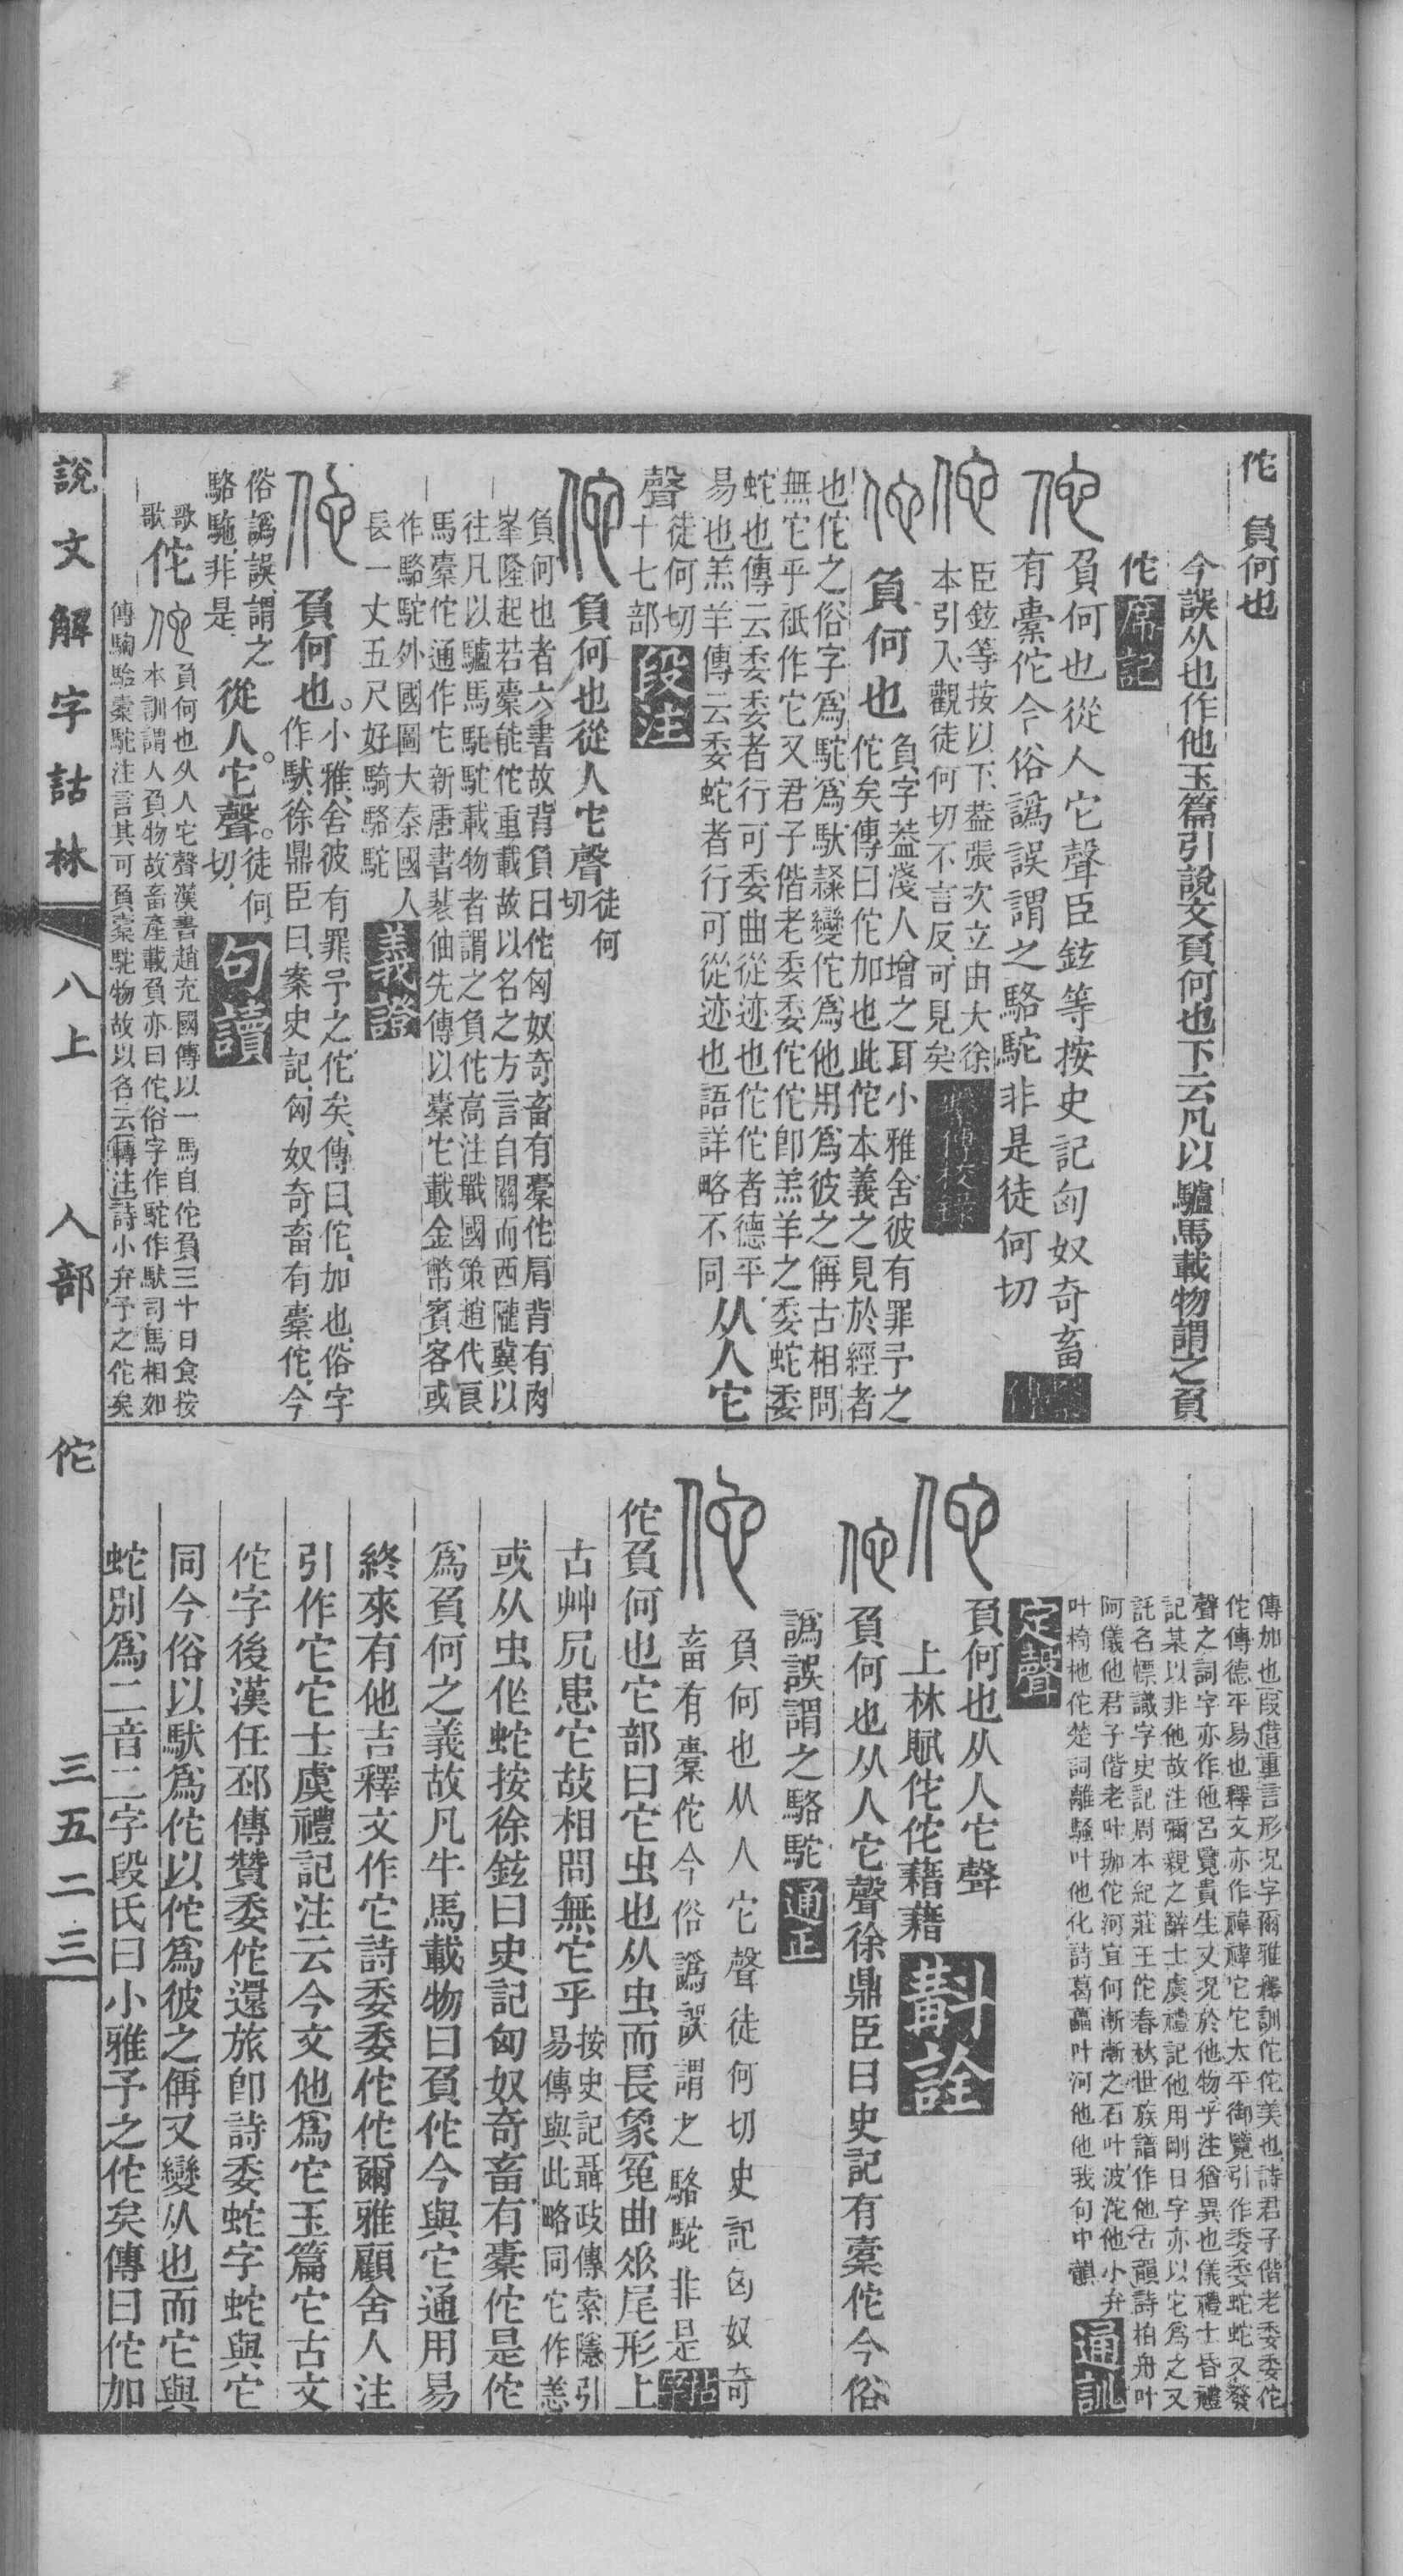 佗　負何也
今誤从也作他玉篇引說文負何也下云凡以驢馬載物謂之負
佗席記
佗負何也從人它聲臣鉉等按史記匈奴奇畜
有橐佗今俗譌誤謂之駱駝非是徒何切
佗臣鉉等按以下葢張次立由大徐
本引入觀徒何切不言反可見矣
佗負何也負字葢淺人增之耳小雅舍彼有罪予之
佗矣傳曰佗加也此佗本義之見於經者
也佗之俗字爲駝爲馱隸變佗爲他用爲彼之偁古相問
無它乎祇作它又君子偕老委委佗佗卽羔羊之委蛇委
蛇也傳云委委者行可委曲從迹也佗佗者德平
易也羔羊傳云委蛇者行可從迹也語詳略不同从人它
聲徒何切
十七部段注
佗負何也從人它聲徒何
切
負何也者六書故背負曰佗匈奴奇畜有橐佗肩背有肉
峯隆起若橐能佗重載故以名之方言自關而西隴冀以
往凡以驢馬馲駝載物者謂之負佗高注戰國策趙代良
馬橐佗通作它新唐書裴伷先傳以橐它載金幣賓客或
作駱駝外國圖大秦國人
長一丈五尺好騎駱駝義證
佗負何也。小雅、舍彼有罪予之佗矣、傳曰、佗、加也、俗字
作馱、徐鼎臣曰、案史記、匈奴奇畜有橐佗、今
俗譌誤、謂之
駱駞、非是、從人。它聲。徒何
切、句讀
歌
歌佗佗負何也从人它聲漢書趙充國傳以一馬自佗負三十日食按
本訓謂人負物故畜產載負亦曰佗俗字作駝作馱司馬相如
傳騊駼橐駝注言其可負橐駝物故以名云轉注詩小弁予之佗矣
傳加也叚借重言形況字爾雅釋訓佗佗美也詩君子偕老委委佗
佗傳德平易也釋文亦作褘褘它它太平御覽引作委委蛇蛇又發
聲之詞字亦作他呂覽貴生又況於他物乎注猶異也儀禮士昏禮
記某以非他故注彌親之辭士虞禮記他用剛日字亦以它爲之又
託名幖識字史記周本紀莊王佗春秋世族譜作他古韻詩柏舟叶
阿儀他君子偕老叶珈佗河宜何漸漸之石叶波沱他小弁
叶椅杝佗楚詞離騷叶他化詩葛藟叶河他他我句中韻通訓
定聲
佗負何也从人它聲
上林賦佗佗藉藉斠詮
佗負何也从人它聲徐鼎臣曰史記有橐佗今俗
譌誤謂之駱駝通正
佗負何也从人它聲徒何切史記匈奴奇
畜有橐佗今俗譌誤謂之駱駝非是
佗負何也它部曰它虫也从虫而長象冤曲𠂹尾形上
古艸凥患它故相問無它乎按史記聶政傳索隱引
易傳與此略同它作恙
或从虫作蛇按徐鉉曰史記匈奴奇畜有橐佗是佗
爲負何之義故凡牛馬載物曰負佗今與它通用易
終來有他吉釋文作它詩委委佗佗爾雅顧舍人注
引作它它士虞禮記注云今文他爲它玉篇它古文
佗字後漢任邳傳贊委佗還旅卽詩委蛇字蛇與它
同今俗以馱爲佗以佗爲彼之偁又變从也而它與
蛇別爲二音二字段氏曰小雅予之佗矣傳曰佗加
說文解字詁林　八上　人部　佗　三五二三